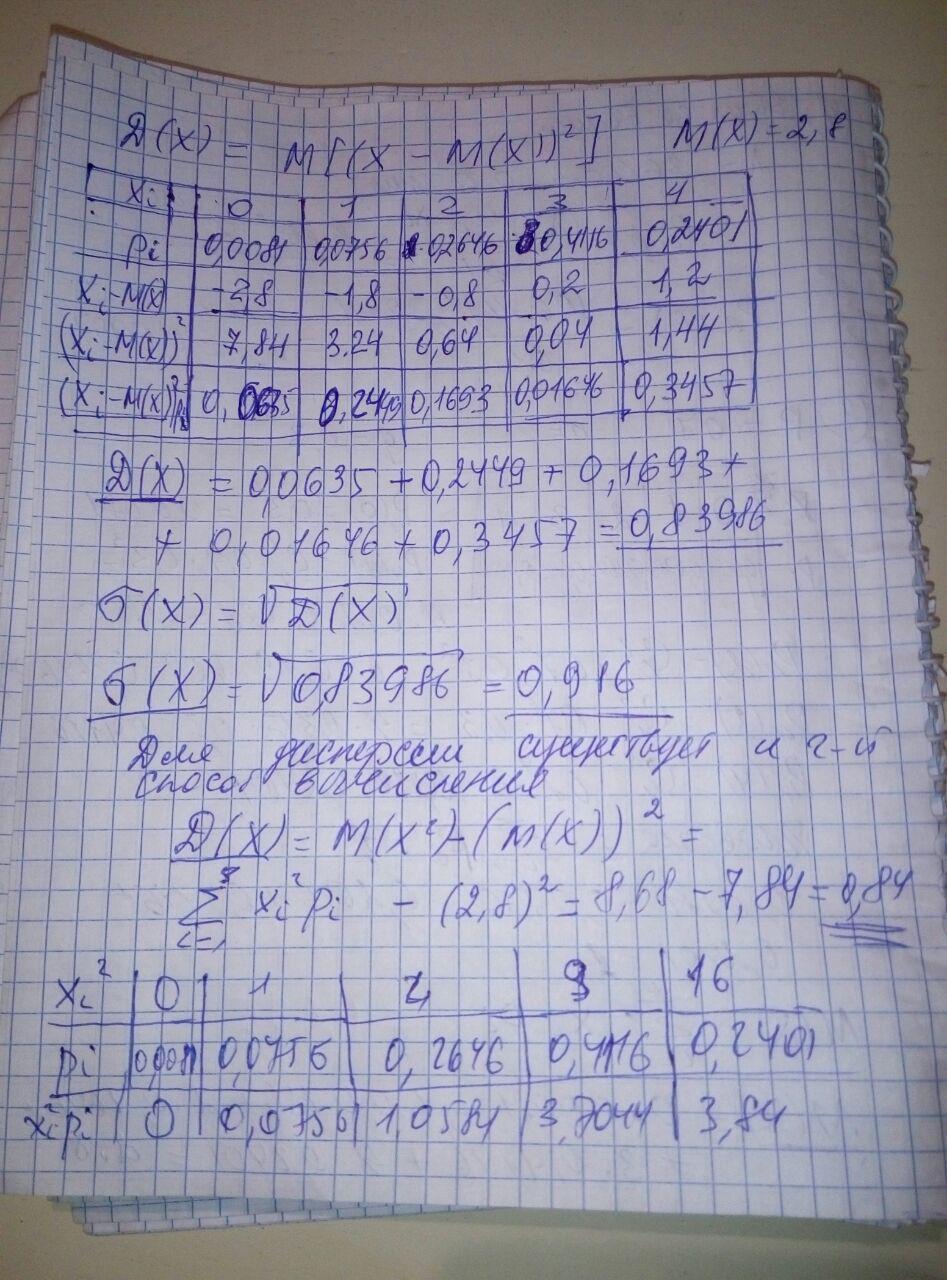 D(X) = M[(X – M(X))²]   M(X) = 2,8
xi 0 1 2 3 4
pi 0,0081 0,0756 0,2646 0,4116 0,2401
Xi-M(X) -2,8 -1,8 -0,8 0,2 1,2
(Xi-M(X))² 7,84 3.24 0,64 0,04 1,44
(Xi-M(X))²pi 0,0635 0,2449 0,1693 0,01646 0,3457
D(X) = 0,0635 + 0,2449 + 0,1693 +
+ 0,01646 + 0,3457 = 0,83986
σ(X) = √D(X)
σ(X) = √0,83986 = 0,916
Для дисперсии существует и 2-й
способ вычисления
D(X) = M(X²) - (M(X))² =
∑ xi²pi - (2,8)² = 8,68 - 7,84 = 0,84
i=1
xi² 0 1 4 9 16
pi 0,0081 0,0756 0,2646 0,4116 0,2401
xi²pi 0 0,0756 1,0584 3,7044 3,84